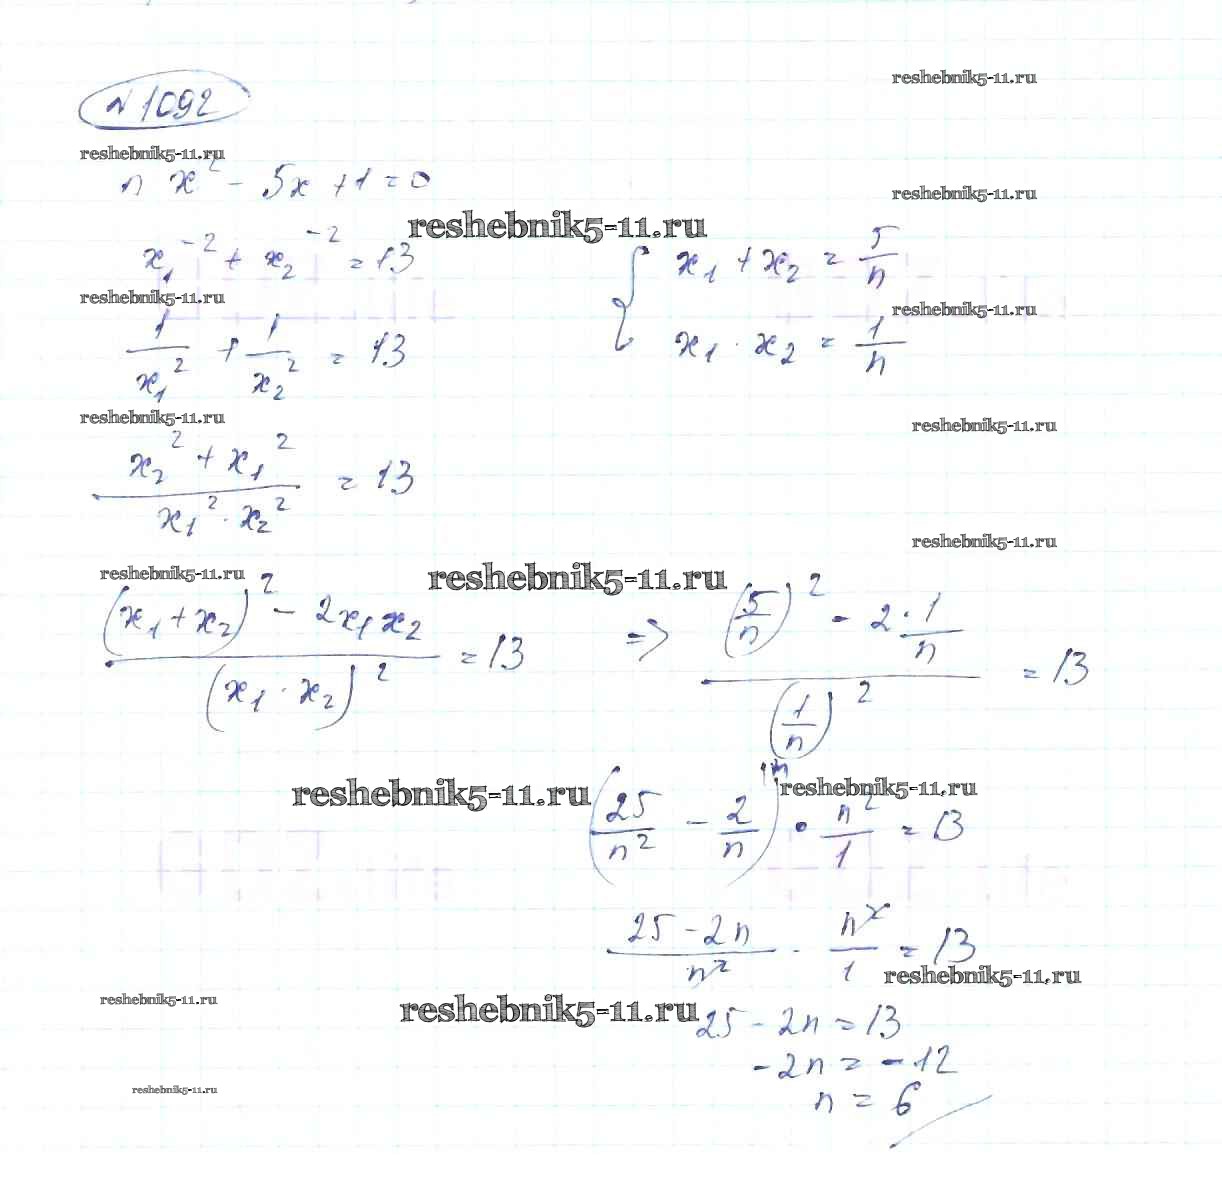 reshebnik5-11.ru
№ 1092
reshebnik5-11.ru
n x² - 5x + 1 = 0
reshebnik5-11.ru
reshebnik5-11.ru
x₁⁻² + x₂⁻² = 13
{ x₁ + x₂ = 5/n
reshebnik5-11.ru
reshebnik5-11.ru
1/x₁² + 1/x₂² = 13
x₁ · x₂ = 1/n
reshebnik5-11.ru
reshebnik5-11.ru
(x₂² + x₁²)/(x₁² · x₂²) = 13
reshebnik5-11.ru
reshebnik5-11.ru
reshebnik5-11.ru
((x₁ + x₂)² - 2x₁x₂)/(x₁ · x₂)² = 13 => ((5/n)² - 2 · 1/n)/(1/n)² = 13
reshebnik5-11.ru
reshebnik5-11.ru
(25/n² - 2/n) · n²/1 = 13
(25 - 2n)/n² · n²/1 = 13
reshebnik5-11.ru
reshebnik5-11.ru
reshebnik5-11.ru
25 - 2n = 13
-2n = -12
reshebnik5-11.ru
n = 6